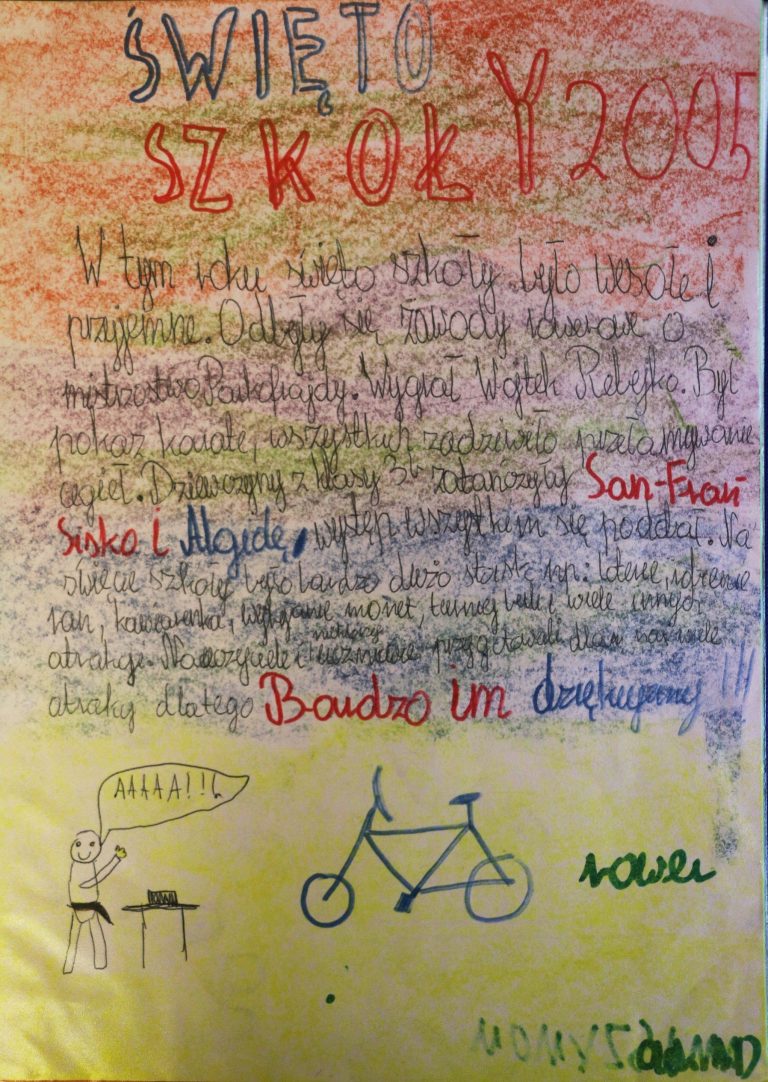 ŚWIĘTO
SZKOŁY 2005
W tym roku święto szkoły było wesołe i
przyjemne. Odbyły się zawody rowerowe o
mistrzostwo. Wygrał Wojtek Rebejko. Był
pokaz karate, wszystkich zadziwiło przełamywanie
cegieł. Dziewczyny z klasy 3b zatańczyły San-Fran
Sisko i Algidę, występ wszystkim się podobał. Na
święcie szkoły było bardzo dużo np: loterie,
kawiarenka, monet, turniej i wiele innych
atrakcji. Nauczyciele i niektórzy uczniowie przygotowali dla nas wiele
dlatego Bardzo im dziękujemy !!!
AAAAA!!!
rower